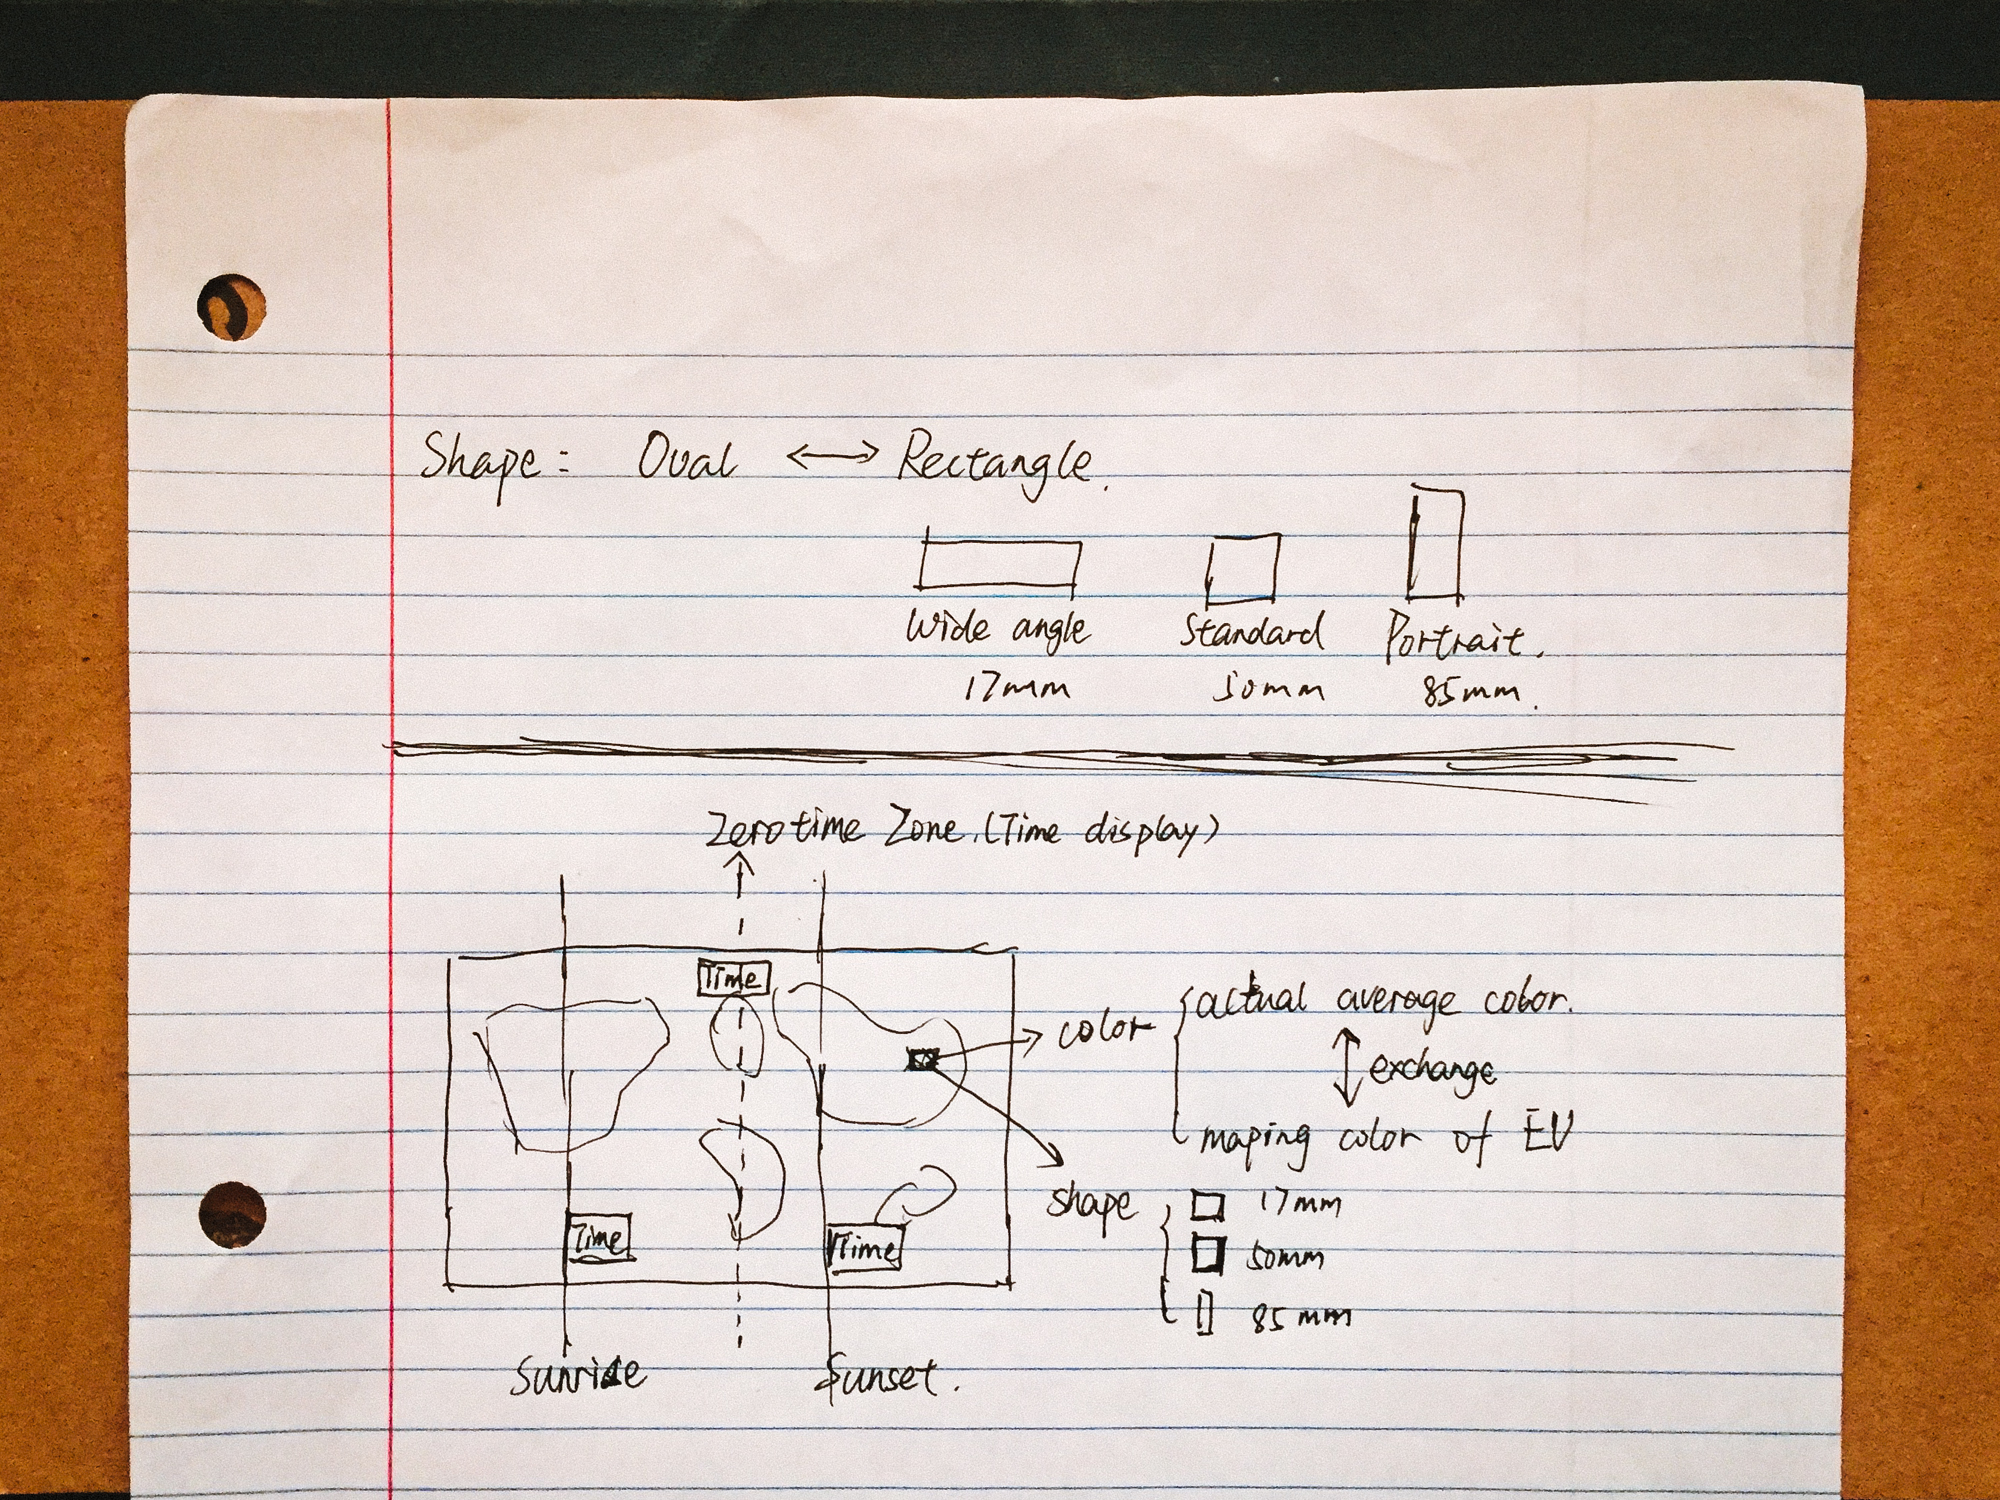 Shape: Oval ↔ Rectangle.
Wide angle Standard Portrait.
17mm 50mm 85mm.
Zero time Zone. (Time display)
Time
color { actual average color.
↕ exchange
maping color of EV
shape { 17mm
50mm
85mm
Time Time
Sunrise Sunset.